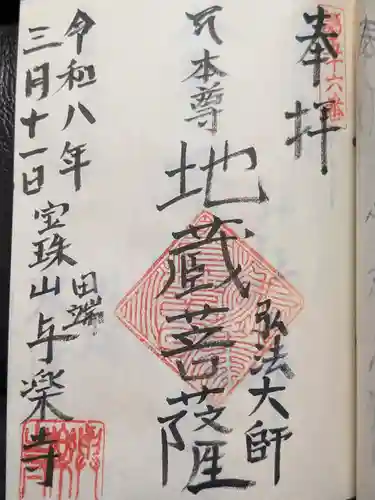 奉拝
本尊
地蔵菩薩
弘法大師
令和八年
三月十一日
宝珠山
田端
与楽寺